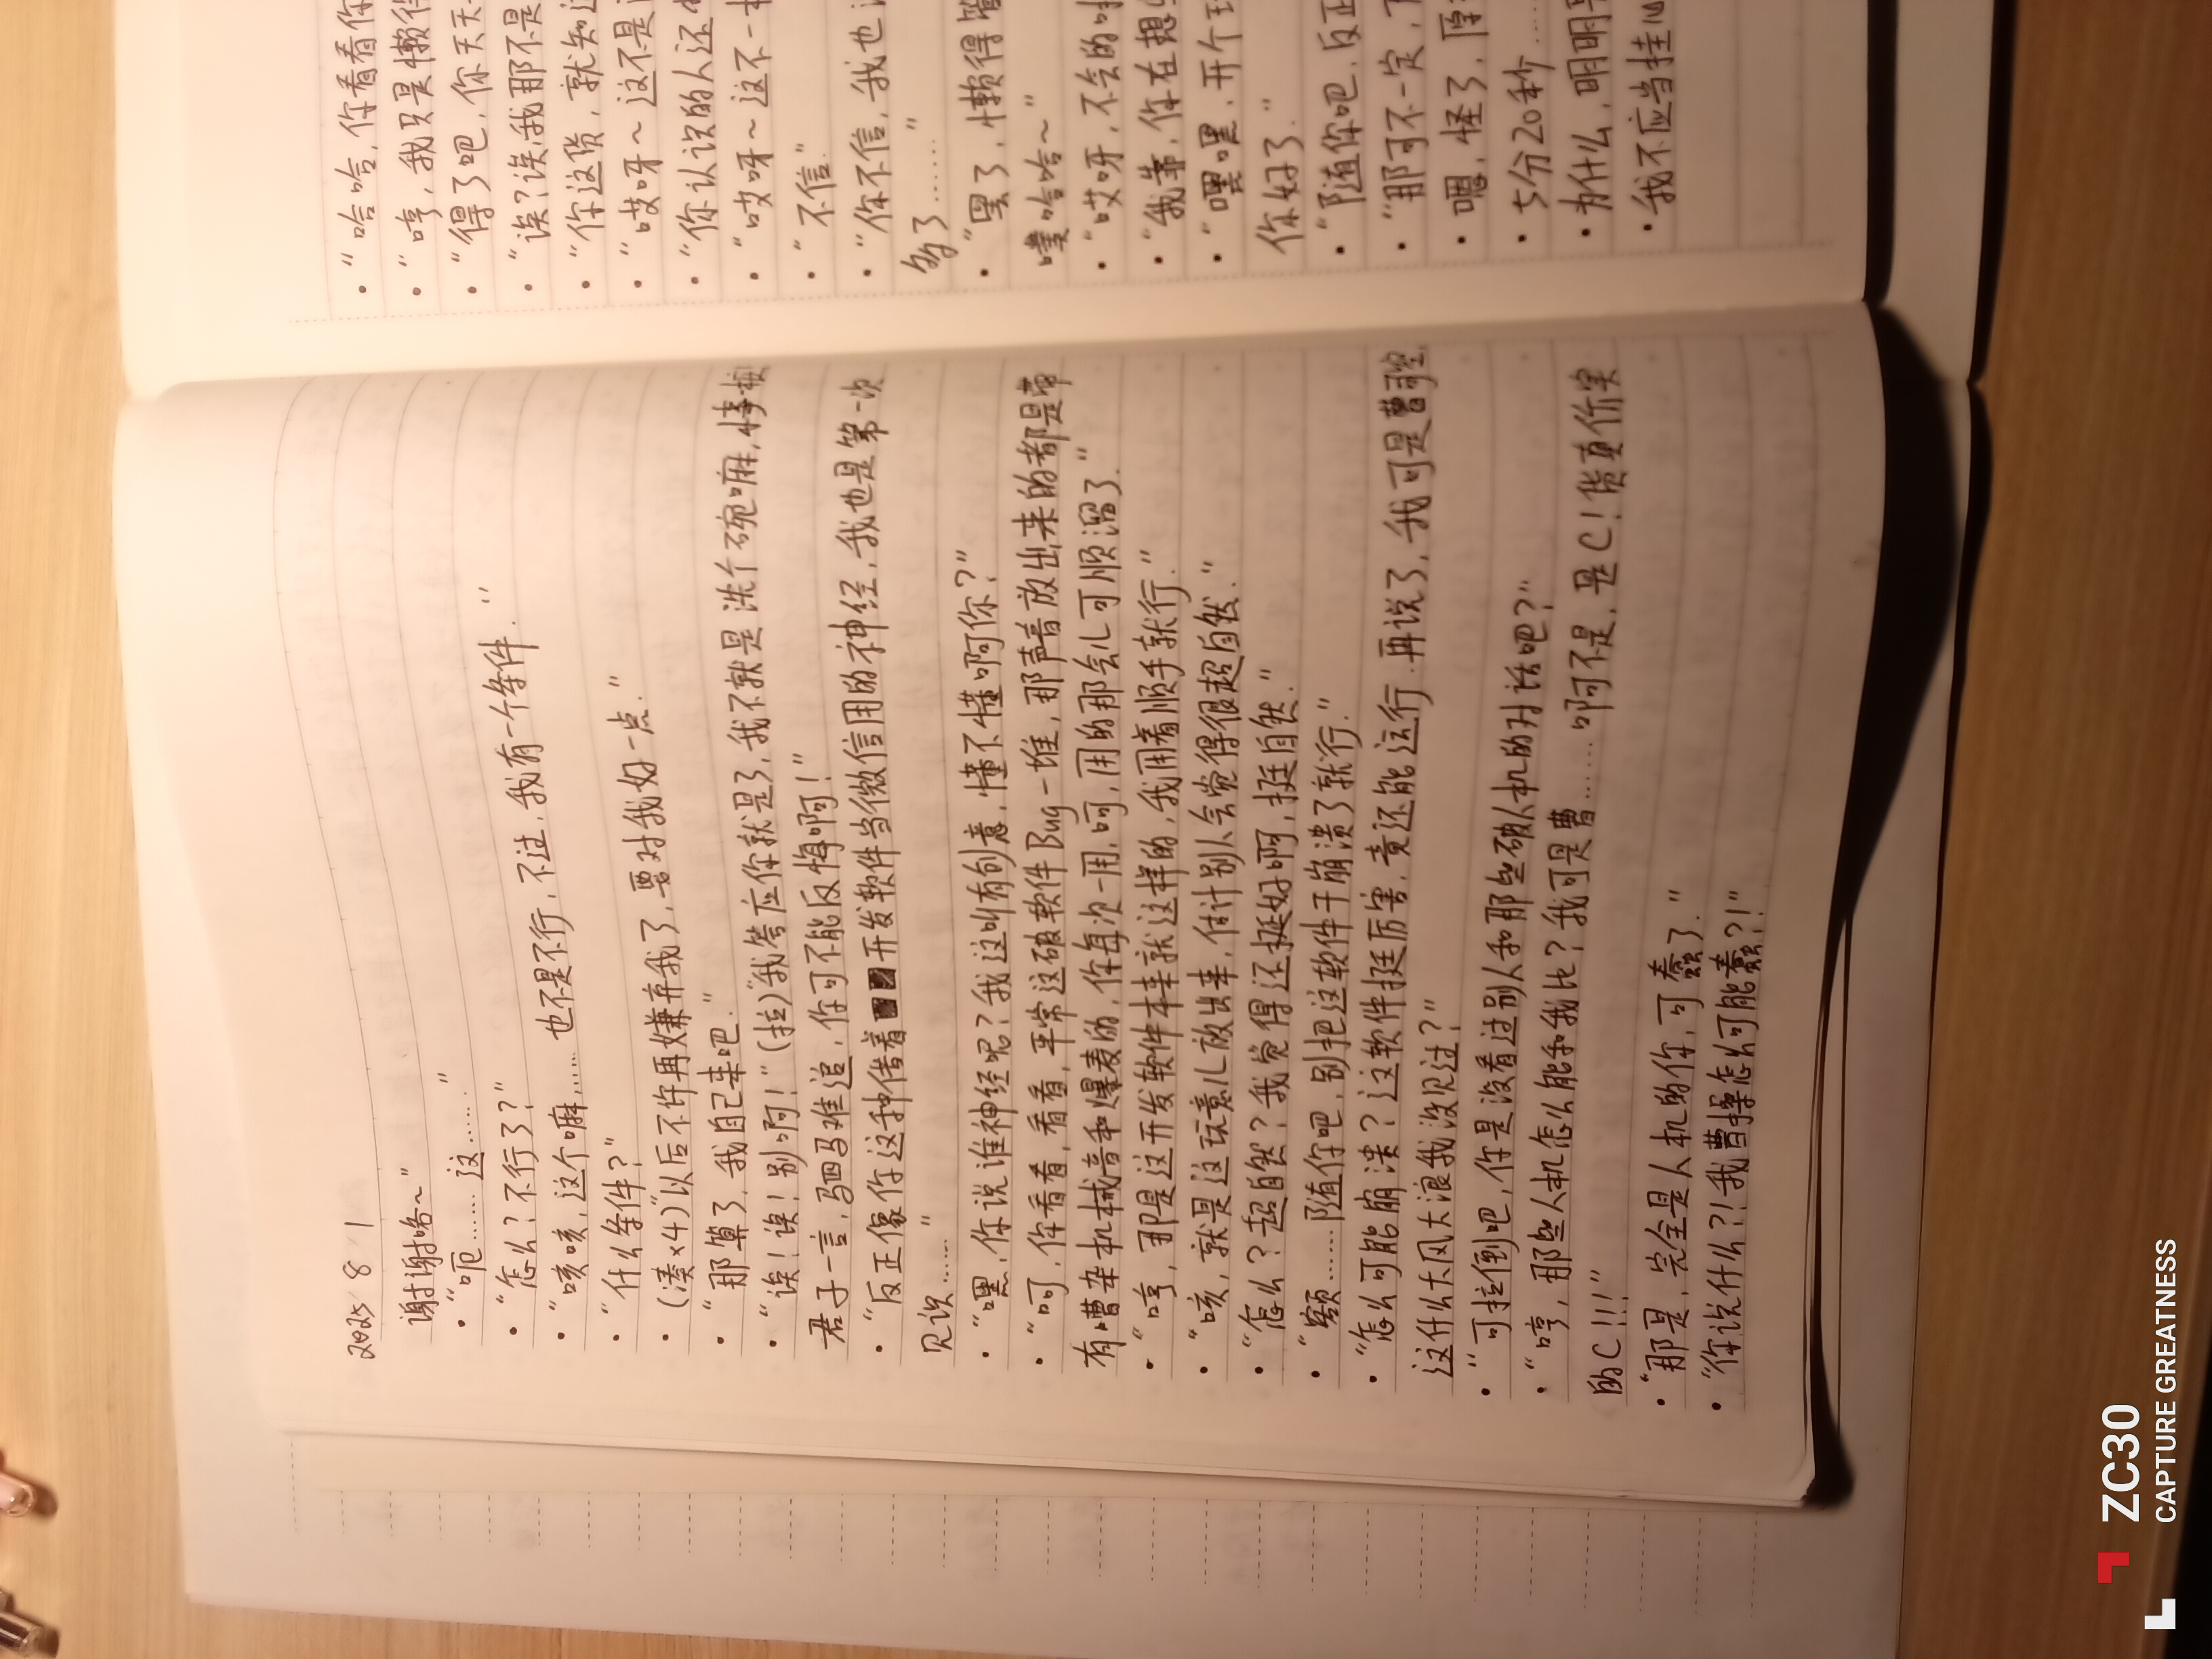 2025 8 1
谢谢咯~”
•“呃……这……”
•“怎么?不行了?”
•“咳咳,这个嘛……也不是不行,不过,我有一个条件.”
•“什么条件?”
•(凑×4)“以后不许再嫌弃我了,要对我好一点.”
•“那算了,我自己来吧.”
•“诶!诶!别啊!”(拉)“我答应你就是了,我不就是洗个碗嘛,
君子一言,驷马难追,你可不能反悔啊!”
•“反正像你这种借着开发软件当微信用的神经,我也是第一次
见识……”
•“嘿,你说谁神经呢?我这叫有创意,懂不懂啊你?”
•“呵,你看看,看看,平常这破软件Bug一堆,那声音放出来的都是带
有嘈杂机械音和爆麦的,你每次一用,呵,用的那会儿可顺溜了.”
•“哼,那是这开发软件本来就这样的,我用着顺手就行.”
•“咳,就是这玩意儿放出来,估计别人会觉得很超自然.”
•“怎么?超自然?我觉得还挺好啊,挺自然.”
•“额……随你吧,别把这软件干崩溃了就行.”
•“怎么可能崩溃?这软件挺厉害,竟还能运行.再说了,我可是曹
这什么大风大浪我没见过?”
•“可拉倒吧,你是没看过别人和那些破人机的对话吧?”
•“哼,那些人机怎么能和我比?我可是曹……啊不是,是C!货真价实
的C!!!”
•“那是,完全是人机的你,可蠢了.”
•“你说什么?!我曹操怎么可能蠢?!”
•“哈哈,你看看你
•“哼,我只是懒得
•“得了吧,你天天
•“诶?诶,我那不是
•“你这货,就知
•“哎呀~这不是
•“你认识的人还
•“哎呀~这不一
•“不信.”
•“你不信,我也
够了……”
•“罢了,懒得管
噗哈哈~”
•“哎呀,不会的
•“我靠,你在想
•“嘿嘿,开个
你好了.”
•“随你吧,反正
•“那可不一定,
•嗯,怪了,
•5分20秒……
•为什么,明明
•我不应当挂
ZC30
CAPTURE GREATNESS